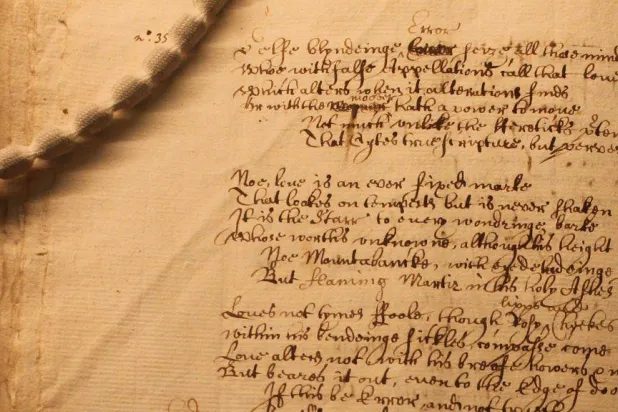 Error
no: 35
selfe blyndeinge seize all those mind
Who with false Appellations call that loue
Which alters when it alteration finds
Or with the hath a power to moue
Not much vnlike the Hereticks
That Cytes true scripture, but
Noe, loue is an ever fixed marke
That lookes on tempests but is never shaken
It is the Starr to euery wandringe barke
Whose worths vnknowne, although his height
Noe Mountabancke, with eyedeludeinge
But flaming Martir in his holy Ashes
lipps and
Loues not tymes Foole, though Rosy cheekes
within his bendeinge sickles compasse come
Loue alters not with his breefe howers
But beares it out, even to the Edge of doo
If this be Error and not